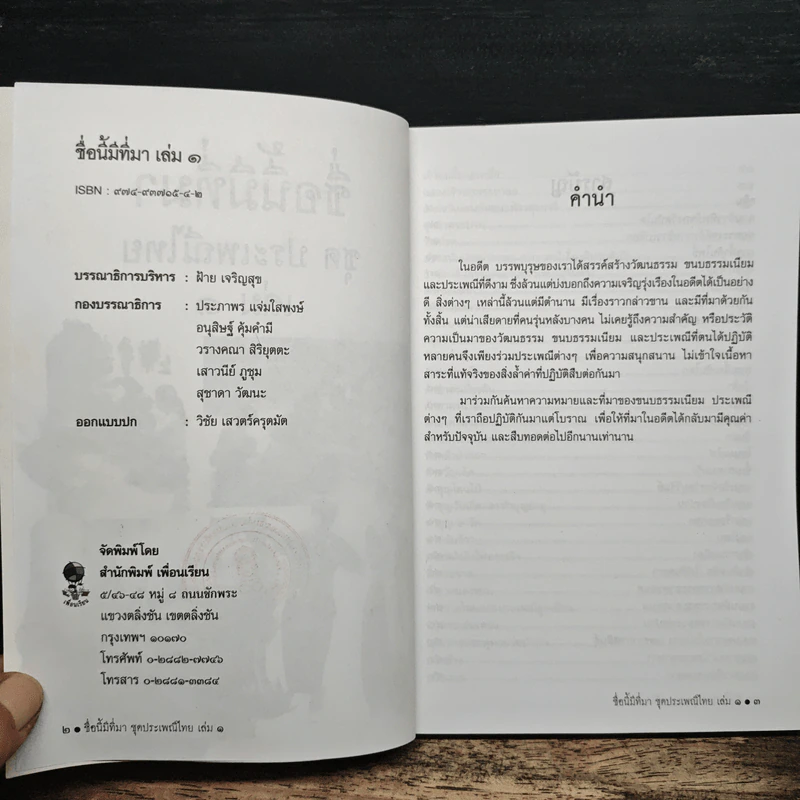 ชื่อนี้มีที่มา เล่ม ๑
ISBN : ๙๗๔-๙๓๗๑๕-๔-๒
บรรณาธิการบริหาร : ฝ้าย เจริญสุข
กองบรรณาธิการ : ประภาพร แจ่มใสพงษ์
อนุสิษฐ์ คุ้มคำมี
วรางคณา สิริยุตตะ
เสาวนีย์ ภูชุม
สุชาดา วัฒนะ
ออกแบบปก : วิชัย เสวตร์ครุตมัต
จัดพิมพ์โดย
สำนักพิมพ์ เพื่อนเรียน
เพื่อนเรียน
๕/๔๖-๔๘ หมู่ ๘ ถนนชักพระ
แขวงตลิ่งชัน เขตตลิ่งชัน
กรุงเทพฯ ๑๐๑๗๐
โทรศัพท์ ๐-๒๘๘๒-๗๗๔๖
โทรสาร ๐-๒๘๘๑-๓๓๘๔
๒ ● ชื่อนี้มีที่มา ชุดประเพณีไทย เล่ม ๑
คำนำ
ในอดีต บรรพบุรุษของเราได้สรรค์สร้างวัฒนธรรม ขนบธรรมเนียม
และประเพณีที่ดีงาม ซึ่งล้วนแต่บ่งบอกถึงความเจริญรุ่งเรืองในอดีตได้เป็นอย่าง
ดี สิ่งต่างๆ เหล่านี้ล้วนแต่มีตำนาน มีเรื่องราวกล่าวขาน และมีที่มาด้วยกัน
ทั้งสิ้น แต่น่าเสียดายที่คนรุ่นหลังบางคน ไม่เคยรู้ถึงความสำคัญ หรือประวัติ
ความเป็นมาของวัฒนธรรม ขนบธรรมเนียม และประเพณีที่ตนได้ปฏิบัติ
หลายคนจึงเพียงร่วมประเพณีต่างๆ เพื่อความสนุกสนาน ไม่เข้าใจเนื้อหา
สาระที่แท้จริงของสิ่งล้ำค่าที่ปฏิบัติสืบต่อกันมา
มาร่วมกันค้นหาความหมายและที่มาของขนบธรรมเนียม ประเพณี
ต่างๆ ที่เราถือปฏิบัติกันมาแต่โบราณ เพื่อให้ที่มาในอดีตได้กลับมามีคุณค่า
สำหรับปัจจุบัน และสืบทอดต่อไปอีกนานเท่านาน
ชื่อนี้มีที่มา ชุดประเพณีไทย เล่ม ๑ ● ๓